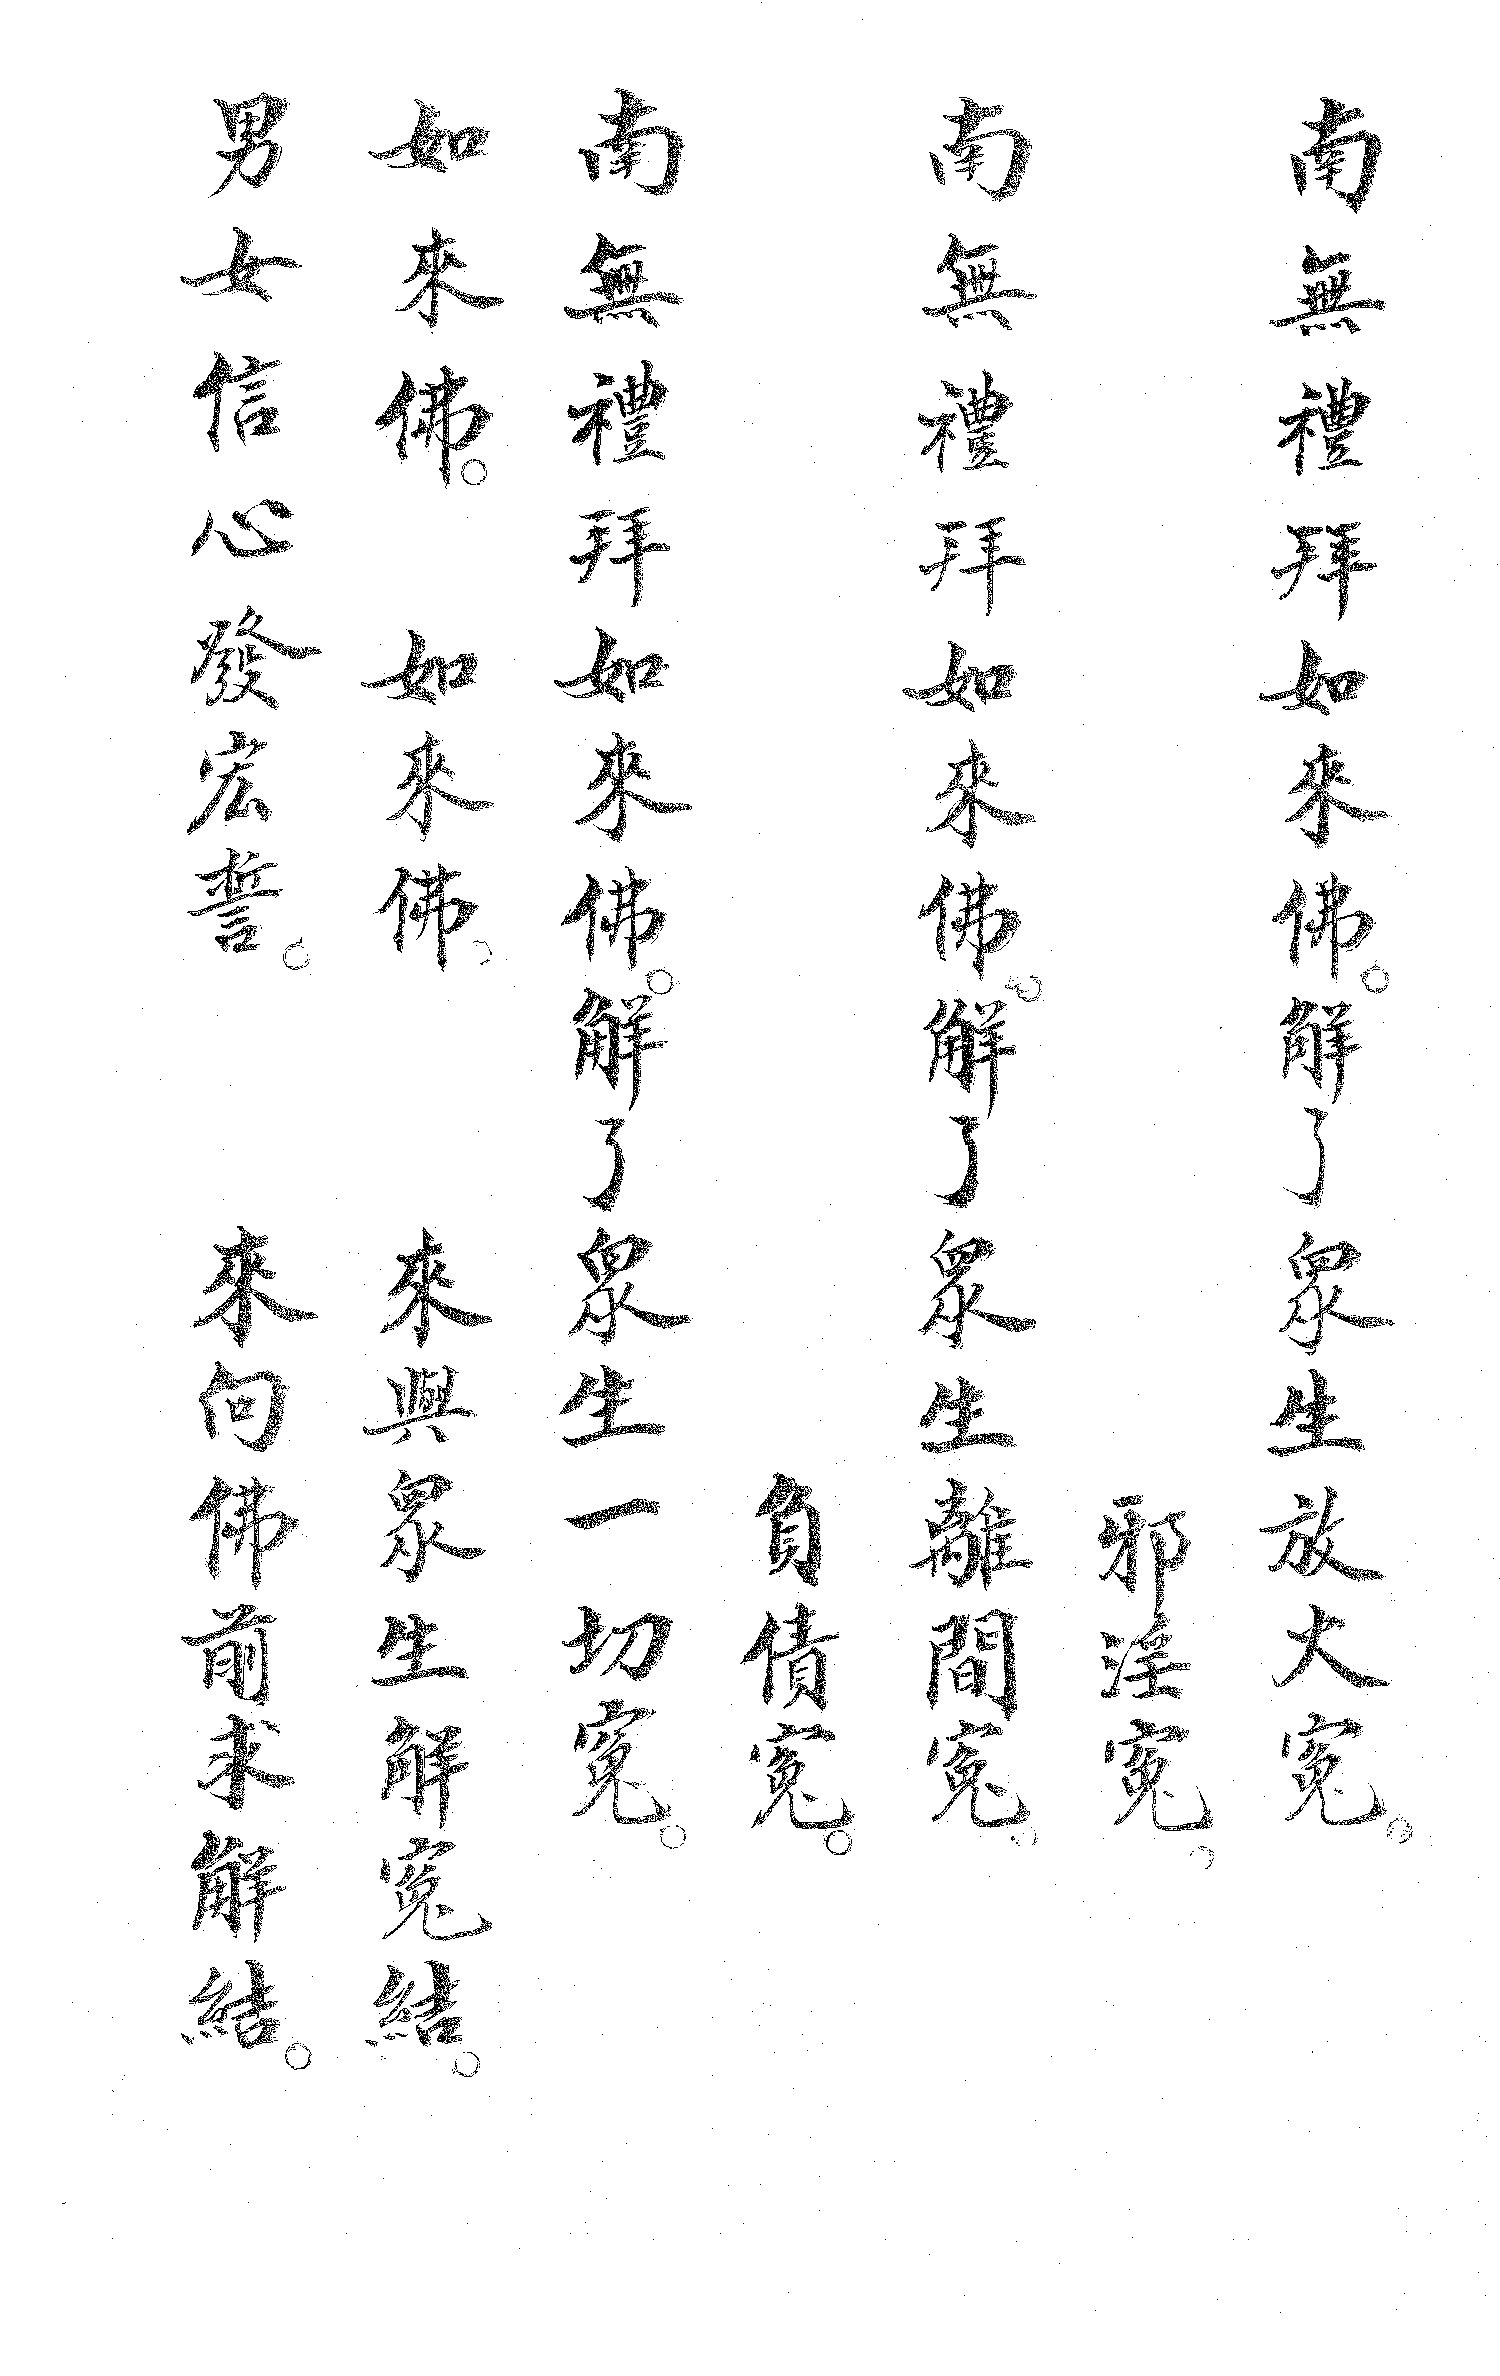 南無禮拜如來佛。解了眾生放火寃。
邪淫寃。
南無禮拜如來佛。解了眾生離間寃。
負債寃。
南無禮拜如來佛。解了眾生一切寃。
如來佛。如來佛。來與眾生解寃結。
男女信心發宏誓。來向佛前求解結。